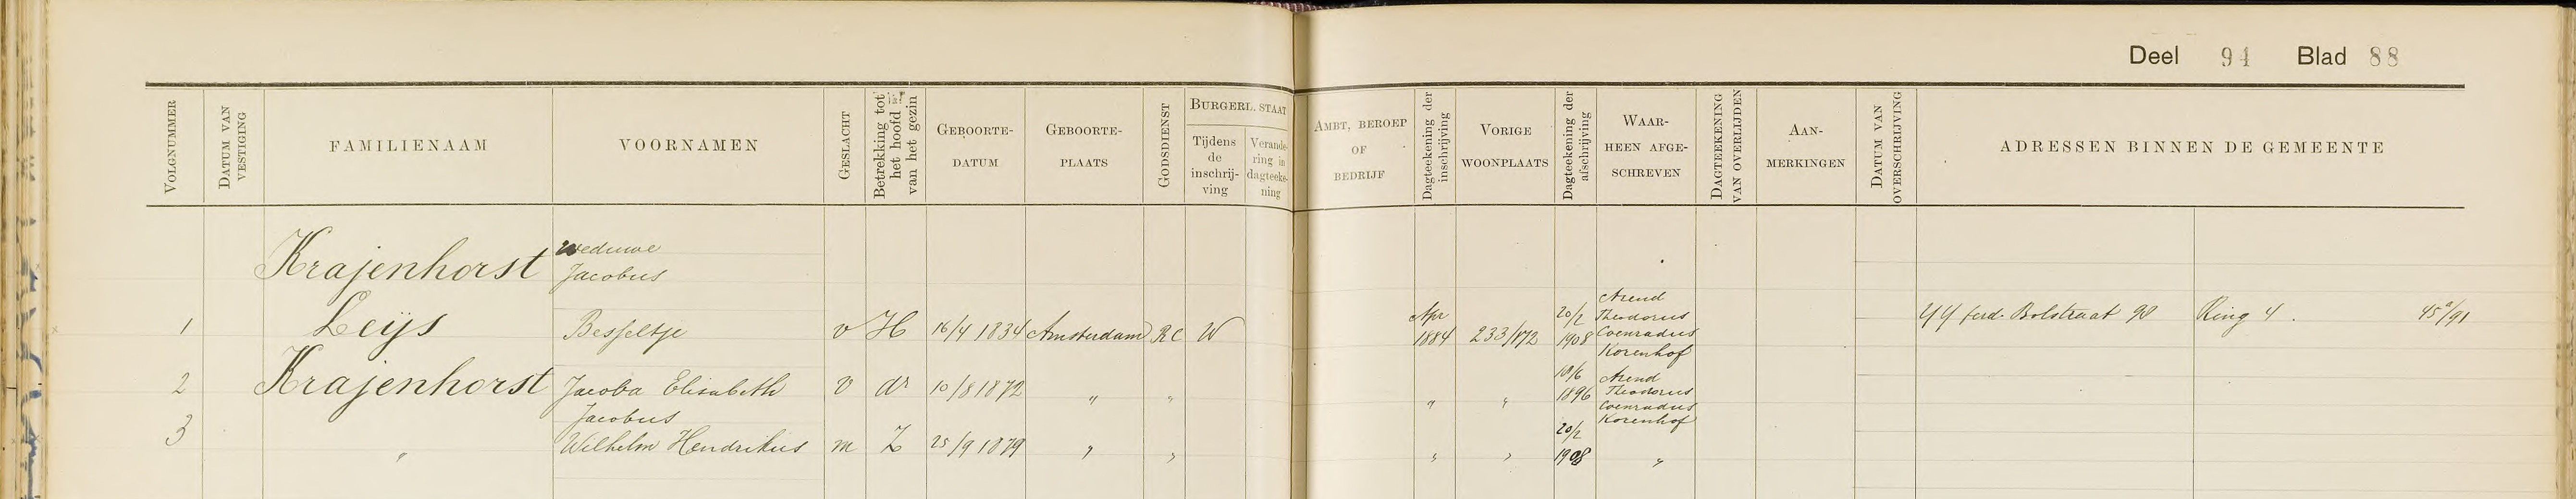 Deel 94 Blad 88
VOLGNUMMER
DATUM VAN VESTIGING
FAMILIENAAM
VOORNAMEN
GESLACHT
Betrekking tot het hoofd van het gezin
GEBOORTE-DATUM
GEBOORTE-PLAATS
GODSDIENST
BURGERL. STAAT
Tijdens de inschrij-ving
Verande-ring in dagteeke-ning
AMBT, BEROEP OF BEDRIJF
Dagteekening der inschrijving
VORIGE WOONPLAATS
Dagteekening der afschrijving
WAAR-HEEN AFGE-SCHREVEN
DAGTEEKENING VAN OVERLIJDEN
AAN-MERKINGEN
DATUM VAN OVERSCHRIJVING
ADRESSEN BINNEN DE GEMEENTE
Krajenhorst weduwe Jacobus
1 Leijs Besseltje v H 16/4 1834 Amsterdam RC W Apr 1884 233/172 20/2 1908 Arend Theodorus Coenradus Korenhof YY ferd. Bolstraat 98 Ring 4. 45a/91
2 Krajenhorst Jacoba Elisabeth v dr 10/8 1872 " " " " 10/6 1896 Arend Theodorus Coenradus Korenhof
3 " Jacobus Wilhelm Hendrikus m Z 25/9 1879 " " " " 20/2 1908 "